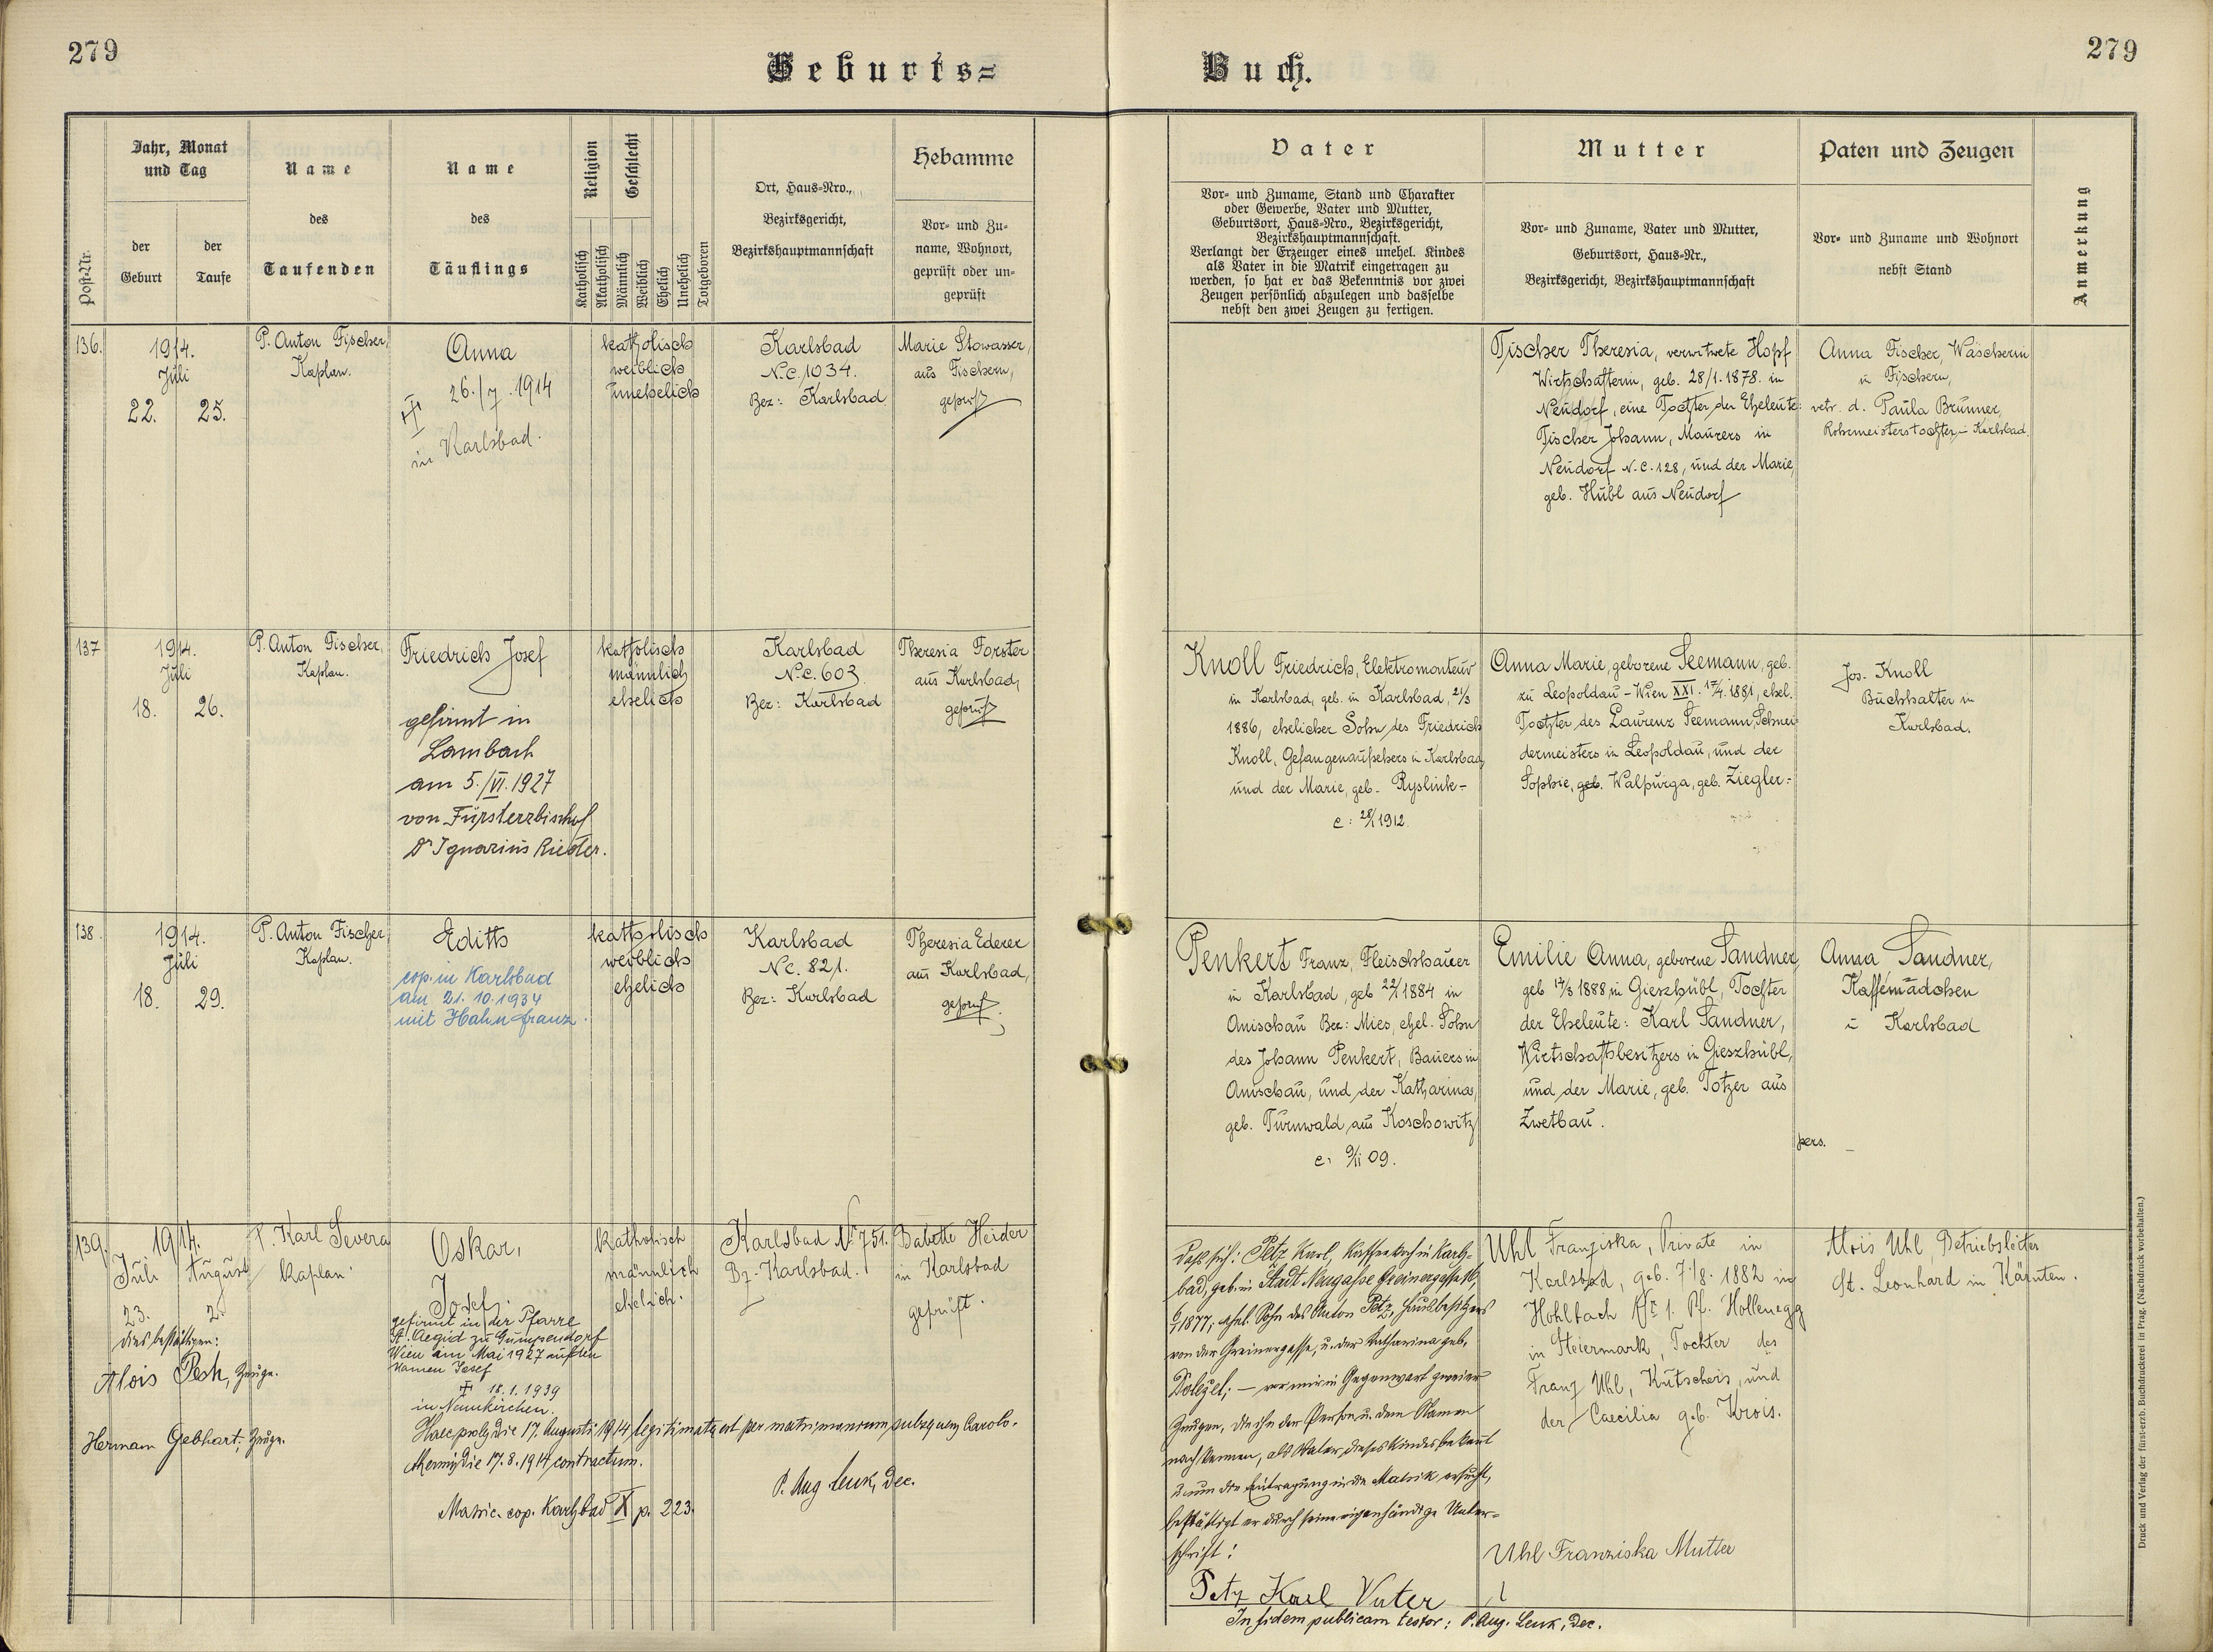 279
Geburts=
Buch.
279
Post-Nr.
Jahr, Monat
und Tag
der
Geburt
der
Taufe
Name
des
Taufenden
Name
des
Täuflings
Religion
Katholisch
Akatholisch
Geschlecht
Männlich
Weiblich
Ehelich
Unehelich
Totgeboren
Ort, Haus-Nro.,
Bezirksgericht,
Bezirkshauptmannschaft
Hebamme
Vor- und Zu-
name, Wohnort,
geprüft oder un-
geprüft
Vater
Vor- und Zuname, Stand und Charakter
oder Gewerbe, Vater und Mutter,
Geburtsort, Haus-Nro., Bezirksgericht,
Bezirkshauptmannschaft.
Verlangt der Erzeuger eines unehel. Kindes
als Vater in die Matrik eingetragen zu
werden, so hat er das Bekenntnis vor zwei
Zeugen persönlich abzulegen und dasselbe
nebst den zwei Zeugen zu fertigen.
Mutter
Vor- und Zuname, Vater und Mutter,
Geburtsort, Haus-Nr.,
Bezirksgericht, Bezirkshauptmannschaft
Paten und Zeugen
Vor- und Zuname und Wohnort
nebst Stand
Anmerkung
136.
1914.
Juli
22. 25.
P. Anton Fischer,
Kaplan.
Anna
26./7. 1914
in Karlsbad.
katholisch
weiblich
unehelich
Karlsbad
N.C. 1034.
Bez: Karlsbad
Marie Stowasser,
aus Fischern,
geprüft
Fischer Theresia, verwitwete Hopf
Wirtschafterin, geb. 28/1. 1878. in
Neudorf, eine Tochter der Eheleute:
Fischer Johann, Maurers in
Neudorf N.C. 128, und der Marie,
geb. Hübl aus Neudorf
Anna Fischer, Wäscherin
in Fischern,
vetr. d. Paula Brunner,
Rohrmeisterstochter in Karlsbad.
137
1914.
Juli
18. 26.
P. Anton Fischer,
Kaplan.
Friedrich Josef
gefirmt in
Lambach
am 5./VI. 1927
von Fürsterzbischof
Dr Ignazius Rieder.
katholisch
männlich
ehelich
Karlsbad
N.C. 603
Bez: Karlsbad
Theresia Forster
aus Karlsbad,
geprüft
Knoll Friedrich, Elektromonteur
in Karlsbad, geb. in Karlsbad, 21/3
1886, ehelicher Sohn des Friedrich
Knoll, Gefangenaufsehers in Karlsbad,
und der Marie, geb. Ryslink-
c: 28/1 1912.
Anna Marie, geborene Seemann, geb.
zu Leopoldau-Wien XXI. 17/4. 1881, ehel.
Tochter des Laurenz Seemann, Schnei-
dermeisters in Leopoldau, und der
Sophie, geb. Walpurga, geb. Ziegler:
Jos. Knoll
Buchhalter in
Karlsbad.
138.
1914.
Juli
18. 29.
P. Anton Fischer,
Kaplan.
Edith
cop. in Karlsbad
am 21. 10. 1934
mit Hahn Franz.
katholisch
weiblich
ehelich
Karlsbad
N.C. 821.
Bez: Karlsbad
Theresia Ederer
aus Karlsbad,
geprüft.
Penkert Franz, Fleischhauer
in Karlsbad, geb 22/1 1884 in
Anischau Bez: Mies, ehel. Sohn
des Johann Penkert, Bauers in
Anischau, und der Katharina,
geb. Turnwald aus Koschowitz
c. 9/11 09.
Emilie Anna, geborene Sandner,
geb 17/3 1888 in Gieszhübl, Tochter
der Eheleute: Karl Sandner,
Wirtschaftsbesitzers in Gieszhübl,
und der Marie, geb. Totzer aus
Zwetbau.
Anna Sandner,
Kaffemädchen
in Karlsbad
pers.
139.
1914.
Juli August
23. 2.
dies bestättigen:
Alois Pesk, Zeuge.
Herman Gebhart. Zeuge.
P. Karl Severa
Kaplan
Oskar,
Josef.
gefirmt in der Pfarre
St. Aegid zu Gumpendorf
Wien am Mai 1927 auf den
Namen Josef
18.1.1939
in Neunkirchen.
Haec proles die 17. Augusti 1914 legitimata est per matrimonium subsequens Carolo-
die 17.8.1914 contractum.
P. Aug Lenk, Dec.
Matric. cop. Karlsbad X p. 223.
katholisch
männlich
ehelich.
Karlsbad No 751.
Bz. Karlsbad.
Babette Heider
in Karlsbad
geprüft.
Daß sich: Petz Karl, Kaffeekoch in Karls-
bad, geb. in Stadt Neugasse Greinergasse
1877, ehel. Sohn des Anton Petz, Hausbesitzers
von der Greinergasse, u. der Katharina geb.
Dolezel; — vor mir in Gegenwart zweier
Zeugen, die ihn der Person u. dem Namen
nach kennen, als Vater dieses Kindes bekennt
u. um die Eintragung in die Matrik ersucht,
bestättigt er durch seine eigenhändige Unter-
schrift:
Petz Karl Vater
In fidem publicam testor: P. Aug. Lenk, Dec.
Uhl Franziska, Private in
Karlsbad, geb. 7./8. 1882 in
Hohlbach No 1. Pf. Hollenegg
in Steiermark, Tochter des
Franz Uhl, Kutschers, und
der Caecilia geb. Krois.
Uhl Franziska Mutter
Alois Uhl, Betriebsleiter
St. Leonhard in Kärnten.
Druck und Verlag der fürst-erzb. Buchdruckerei in Prag. (Nachdruck vorbehalten.)